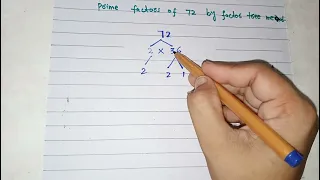 Prime factors of 72 by factor tree
72
2 × 36
2 2 1